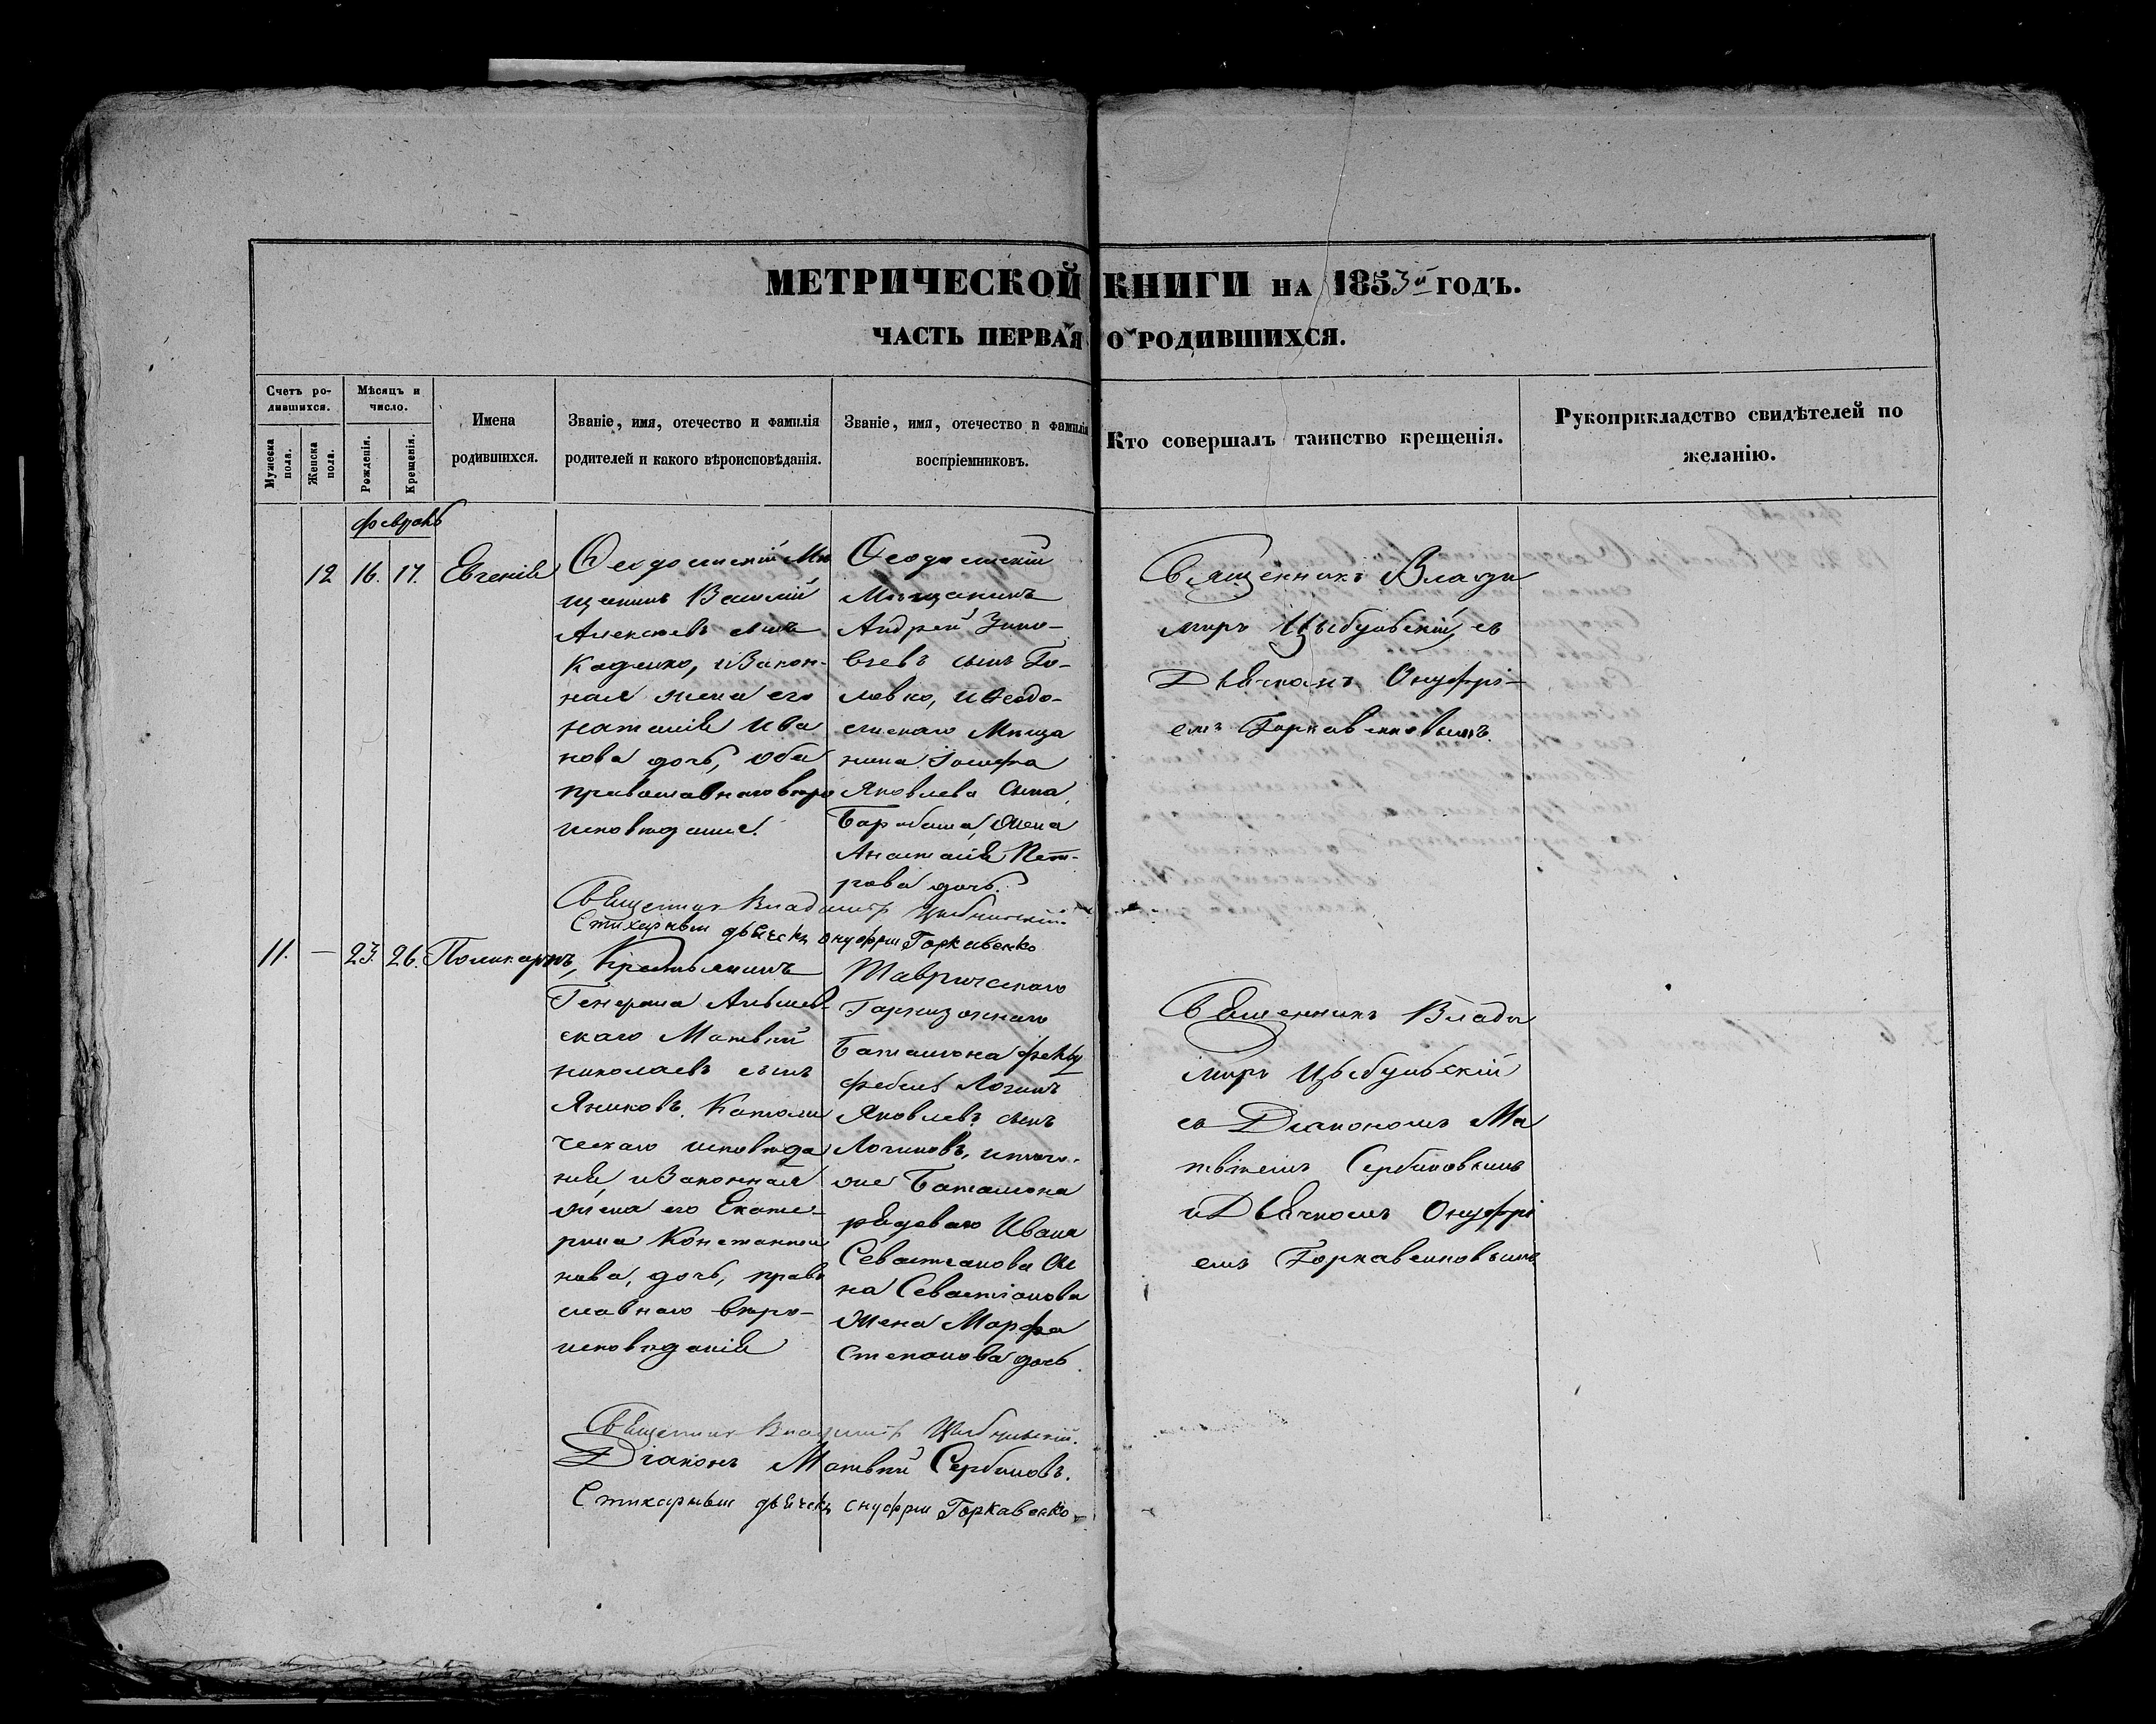 МЕТРИЧЕСКОЙ КНИГИ НА 1853й ГОДЪ.
ЧАСТЬ ПЕРВАЯ О РОДИВШИХСЯ.
Счетъ ро-
дившихся.
Мужеска
пола.
Женска
пола.
Мѣсяцъ и
число.
Рожденія.
Крещенія.
Имена
родившихся.
Званіе, имя, отечество и фамилія
родителей и какого вѣроисповѣданія.
Званіе, имя, отечество и фамилія
воспріемниковъ.
Кто совершалъ таинство крещенія.
Рукоприкладство свидѣтелей по
желанію.
февраль
12 16. 17. Евгенія
Ѳеодосійскій Мѣ
щанинъ Василій
Алексѣевъ сынъ
и Закон-
ная жена его
Наталія Ива
нова дочь, оба
православнаго вѣро
исповѣданія.
Ѳеодосійскій
Мѣщанинъ
Андрей Зино-
віевъ сынъ Го-
ловко, и Ѳеодо-
сійскаго Мѣща
нина Іосифа
Яковлева Сына,
жена
Анастасія Пет-
рова дочь.
Священникъ Влади
миръ Цыбульскій, съ
Дьячкомъ Онуфрі-
емъ Горкавенковымъ.
Священник Владимір Цыбульскій
Стихарный дьячекъ онуфрій Горкавенко
11. — 23. 26. Поликарпъ,
Крестьянинъ
Генерала
скаго Матвѣй
Николаевъ сынъ
Яниковъ. Католи
ческаго исповѣда
нія, и Законная
жена его Екате-
рина Константи
нова, дочь, право
славнаго вѣро-
исповѣданія
Таврическаго
Гарнизоннаго
Баталіона фельд
фебель Логинъ
Яковлевъ сынъ
Логиновъ, и того-
же Баталіона
рядоваго Ивана
Севастіанова
на Севастіанова
жена Марфа
Степанова дочь.
Священникъ Влади
міръ Цыбульскій
съ Діакономъ Ма
твѣемъ Сербиновымъ
и Дьячкомъ Онуфрі
емъ Горкавенковымъ
Священник Владимір Цыбульскій.
Діаконъ Матвѣй Сербиновъ.
Стихарный дьячекъ онуфрій Горкавенко